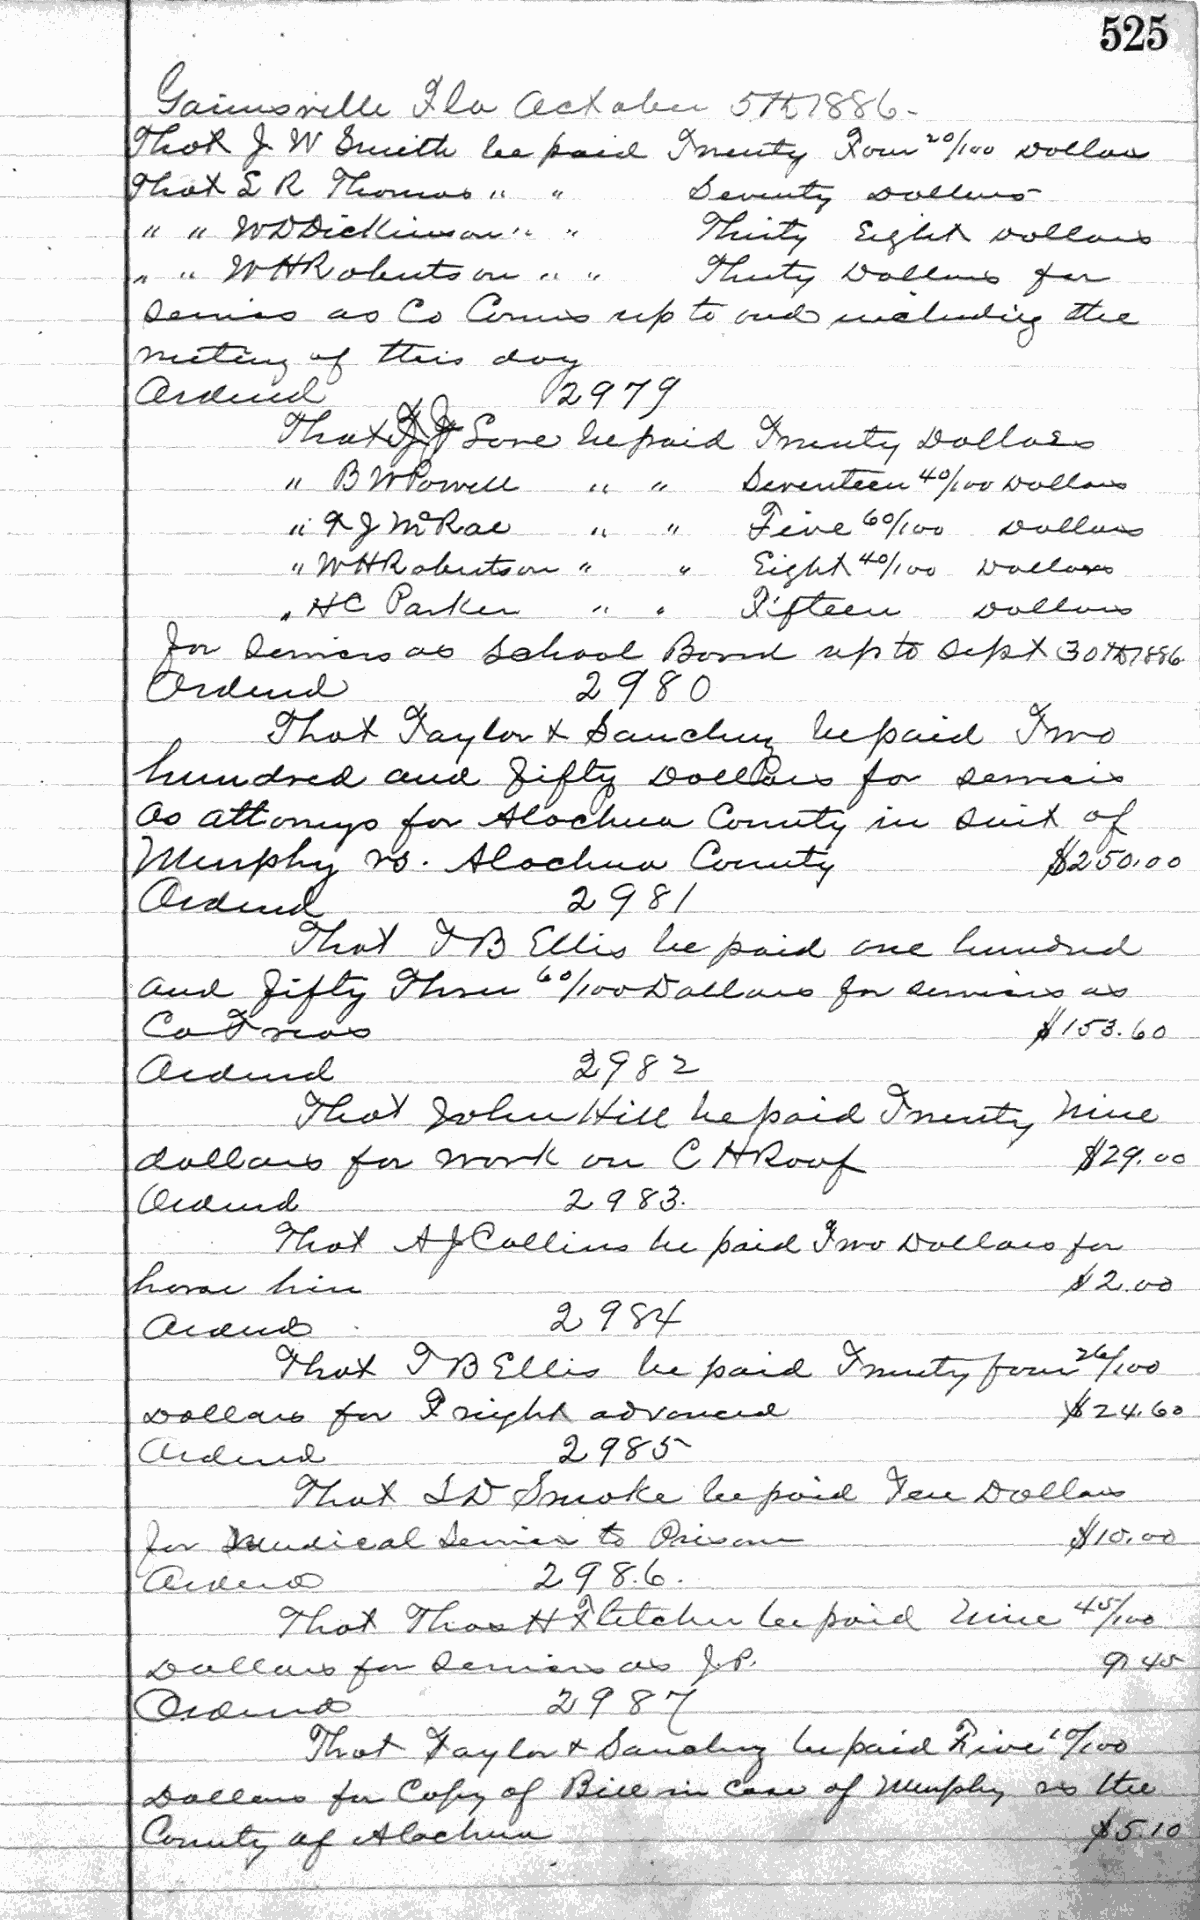 525
Gainesville Fla October 5th 1886.
That J W Smith be paid Twenty Four 20/100 Dollars
That L R Thomas " " Seventy Dollars
" " W D Dickinson " " Thirty Eight Dollars
" " W H Robertson " " Thirty Dollars for
services as Co Coms up to and including the
meeting of this day
Ordered 2979
That Love be paid Twenty Dollars
" B W Powell " " Seventeen 40/100 Dollars
" F J McRae " " Five 60/100 Dollars
" W H Robertson " " Eight 40/100 Dollars
" H C Parker " " Fifteen Dollars
for services as School Board up to Sept 30th 1886
Ordered 2980
That Taylor & Sanchez be paid Two
hundred and fifty Dollars for services
as attorneys for Alachua County in suit of
Murphy vs. Alachua County $250.00
Ordered 2981
That T B Ellis be paid one hundred
and fifty Three 60/100 Dollars for services as
Co Treas $153.60
Ordered 2982
That John Hill be paid Twenty Nine
dollars for work on C H Roof $29.00
Ordered 2983.
That A J Collins be paid Two Dollars for
horse hire $2.00
Ordered 2984
That T B Ellis be paid Twenty four 26/100
Dollars for Freight advanced $24.60
Ordered 2985
That S D Smoke be paid Ten Dollars
for Medical Services to Prison $10.00
Ordered 298.6.
That Thos H Fletcher be paid Nine 45/100
Dollars for services as J.P. 9.45
Ordered 2987
That Taylor & Sanchez be paid Five 10/100
Dollars for Copy of Bill in case of Murphy vs the
County of Alachua $5.10